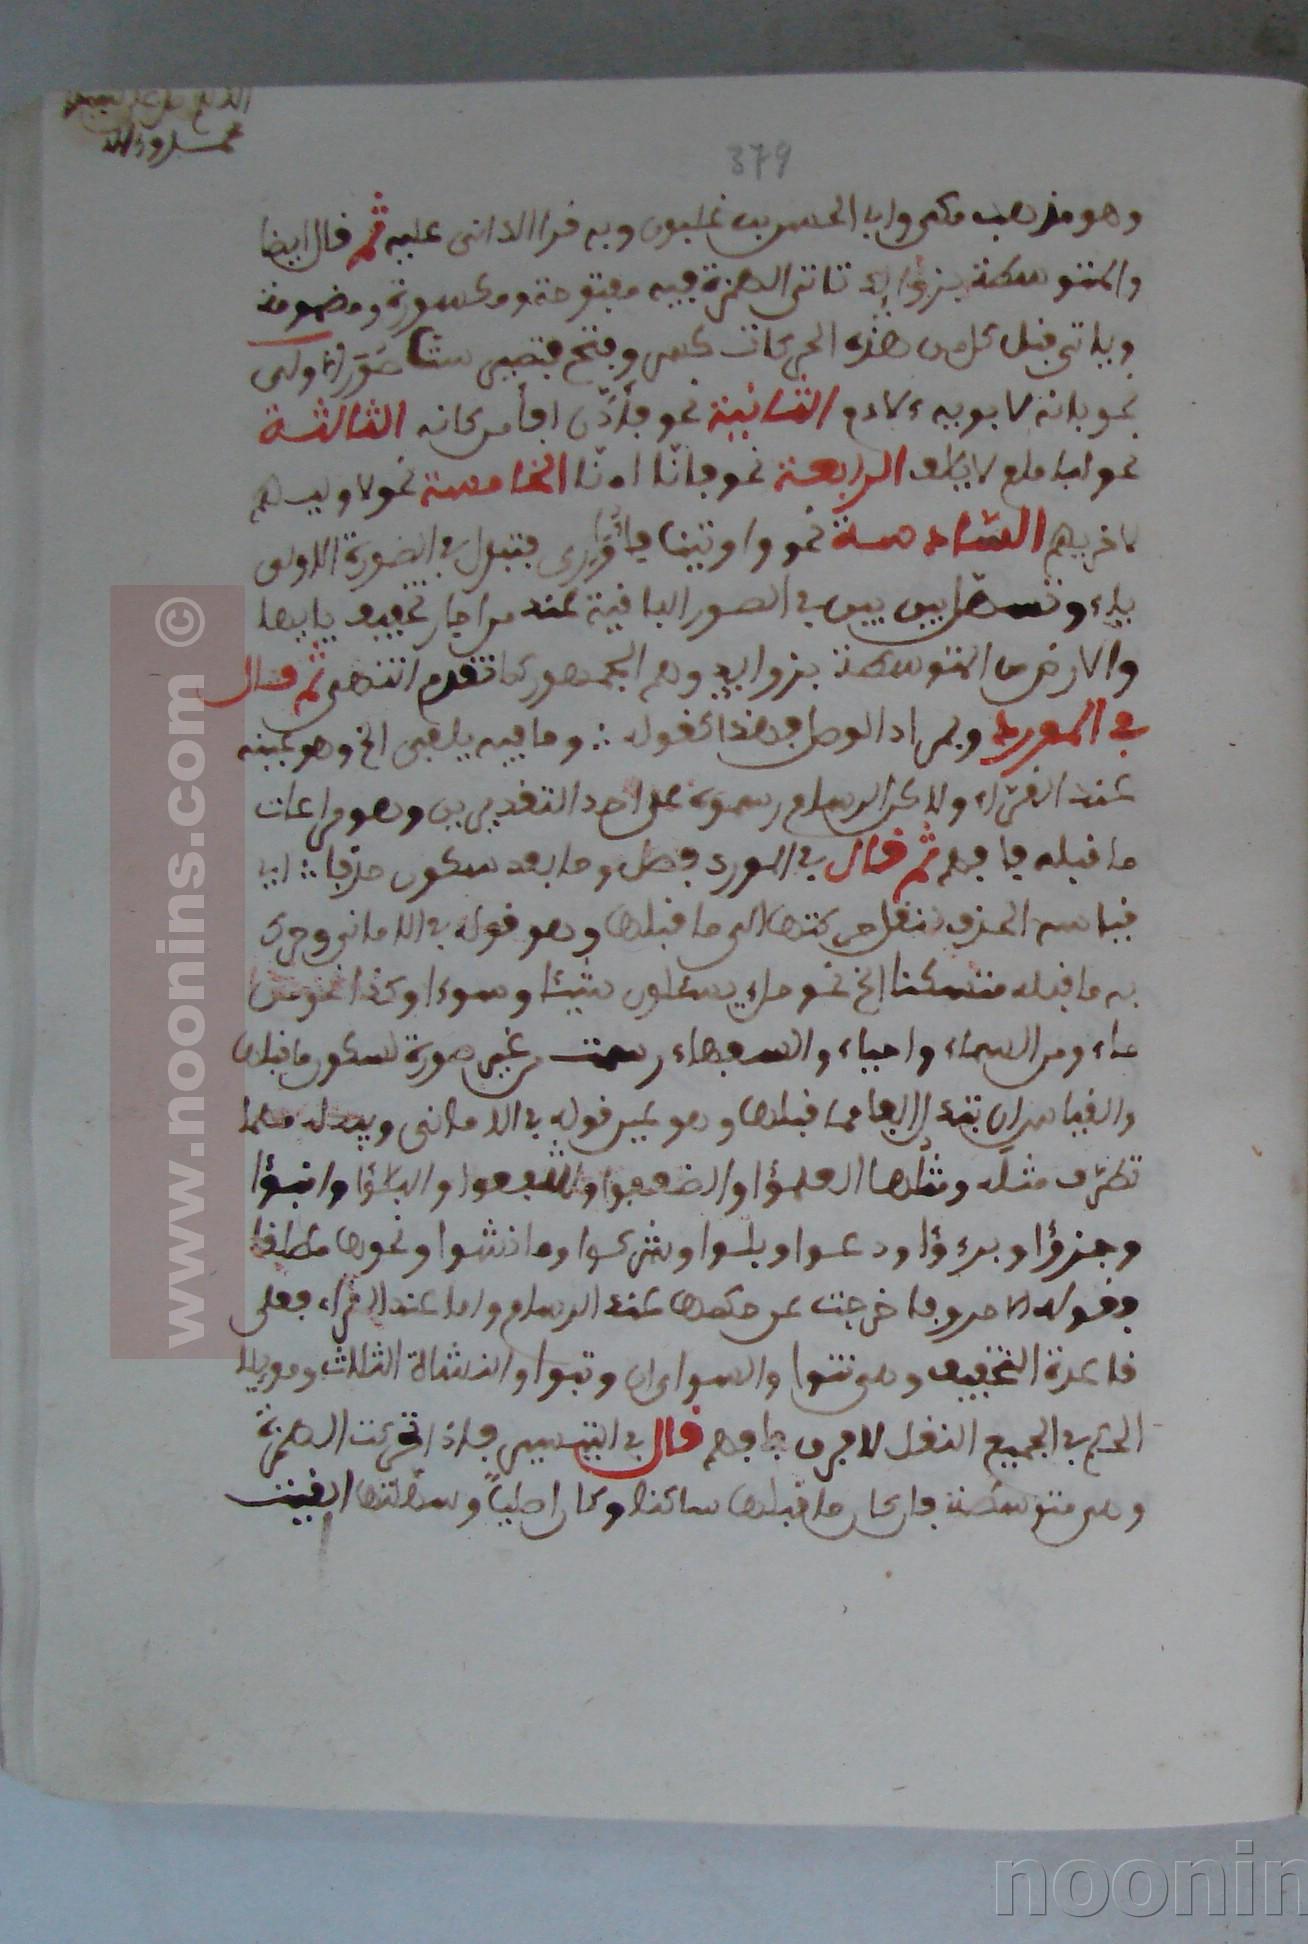 379
وهو مذهب مكي وابي الحسن بن غلبون وبه قرا الداني عليه ثم قال ايضا
والمتوسطة بزوايد تاتي الهمزة فيه مفتوحة ومكسورة ومضمومة
وياتي قبل كل من هذه الحركات كسر وفتح فتصير ستا صور الاولى
نحو بانه لابويه ولادم الثانية نحو فأذن افأمن كانه الثالثة
نحو لبامام لايلف الرابعة نحو فانا اءنا الخامسة نحو لاوليهم
لاخريهم السادسة نحو واوتينا فتبدل في الصورة الاولى
ياء وتسهل بين بين في الصور الباقية عند من اجاز تخفيف
والارض من المتوسطة بزوايد وهم الجمهور كما تقدم انتهى ثم قال
في المورد ومراد الوصل فهذا كقوله ∴ وما فيه يلفى الخ وهو بمينه
عند القراء ولاكن الرسام رسموه على احد التقديرين وهو مراعات
ما قبله فافهم ثم قال في المورد فصل وما بعد سكون حذفا ∴ اي
قياسه الحذف تنقل حركتها الى ما قبلها وهو قوله في الاماني وحرك
به ما قبله متسكنا الخ نحو ملء يسئلون شيئا وسوءا وكذا نحو من
ماء ومن السماء واحياء والسفهاء رسمت من غير صورة لسكون ما قبلها
والقياس ان تبدل الفا مما قبلها وهو عين قوله في الاماني ويبدله مهما
تطرف مثله ومثلها العلمؤا والضعفوا والشفعوا والبلؤا وانبؤا
وجزؤا وبرءؤا ودعوا وبلوا وشركوا وما نشوا ونحوها مطلقا
وقوله الا حروفا خرجت عن حكمها عند الرسام واما عند القراء فعلى
قاعدة التخفيف وهو تنوا والسواى ان وتبوا والنشاة الثلث وموىلا
الحكم في الجميع النقل لا فرق فافهم قال في التيسير فاذا تحركت الهمزة
وهي متوسطة فان كان ما قبلها ساكنا وكان اصليا وسهلتها القيت
www.noonins.com ©
noonin